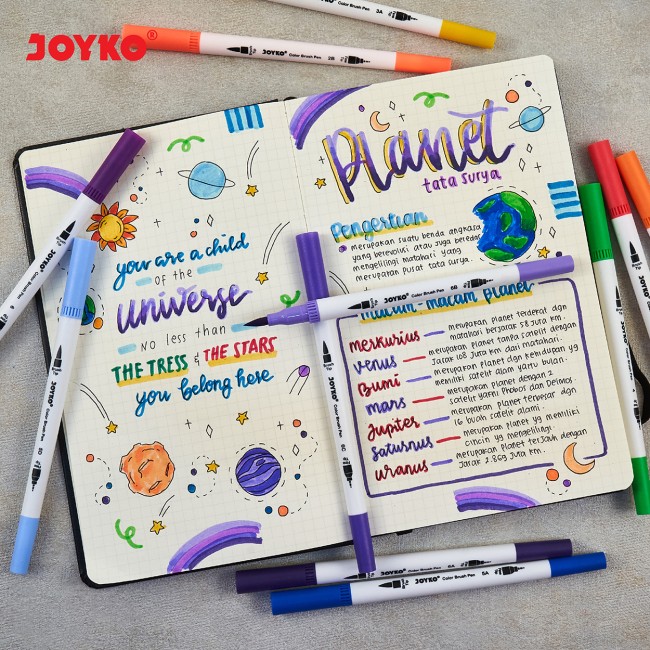 JOYKO®
3A
JOYKO Color Brush Pen 2B
you are a child
OF THE
universe
NO less than
THE TRESS & THE STARS
you belong here
Planet
tata surya
Pengertian
merupakan suatu benda angkasa
yang berevolusi atau juga beredar
mengelilingi matahari yang
merupakan pusat tata surya.
JOYKO Color Brush Pen 6B
macam-macam planet
merkurius — merupakan planet terdekat dgn
matahari berjarak 58 juta km.
venus — merupakan planet tanpa satelit dengan
jarak 108 juta km dari matahari.
Bumi — merupakan planet dgn kehidupan yg
memiliki satelit alam yaitu bulan.
mars — merupakan planet dengan 2
satelit yaitu Phobos dan Deimos.
Jupiter — merupakan planet terbesar dgn
16 buah satelit alami.
saturnus — merupakan planet yg memiliki
cincin yg mengelilingi
uranus — merupakan planet terjauh dengan
jarak 2.869 juta km.
JOYKO Color Brush Pen 6A
JOYKO Color Brush Pen 5A